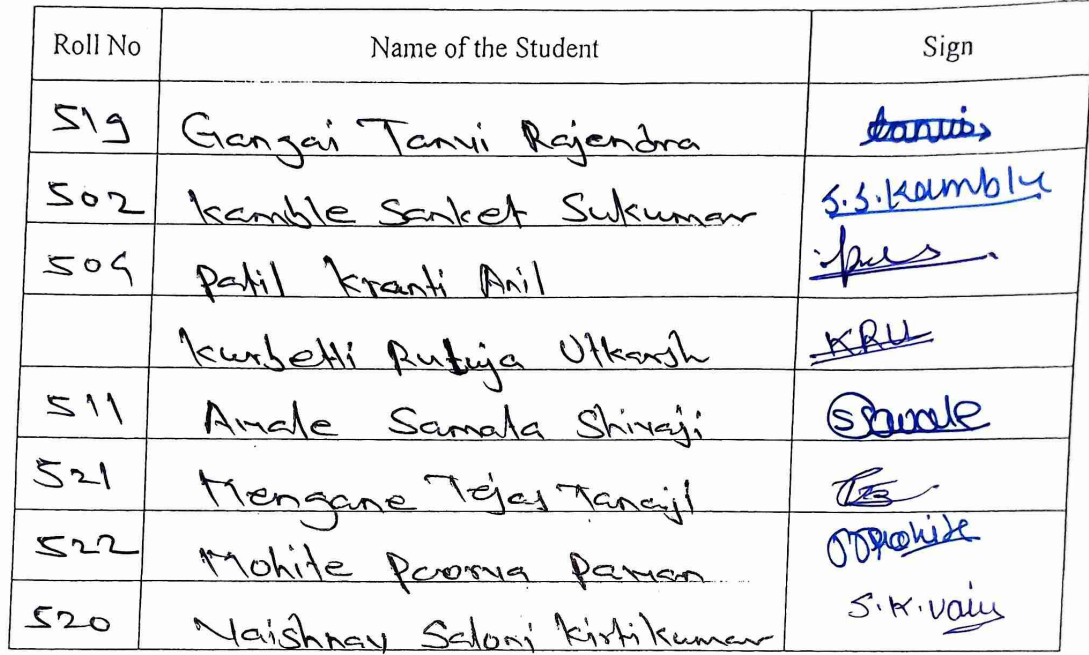 Roll No Name of the Student Sign
519 Gangai Tanvi Rajendra tanvi
502 Kamble Sanket Sukumar S.S.Kamble
504 Patil Kranti Anil
Kurbetti Rutuja Utkarsh KRU
511 Awale Samata Shivaji SAwale
521 Mengane Tejas Tanaji
522 Mohite Poorva Pawan PPMohite
520 Vaishnav Saloni Kirtikumar S.K.Vais